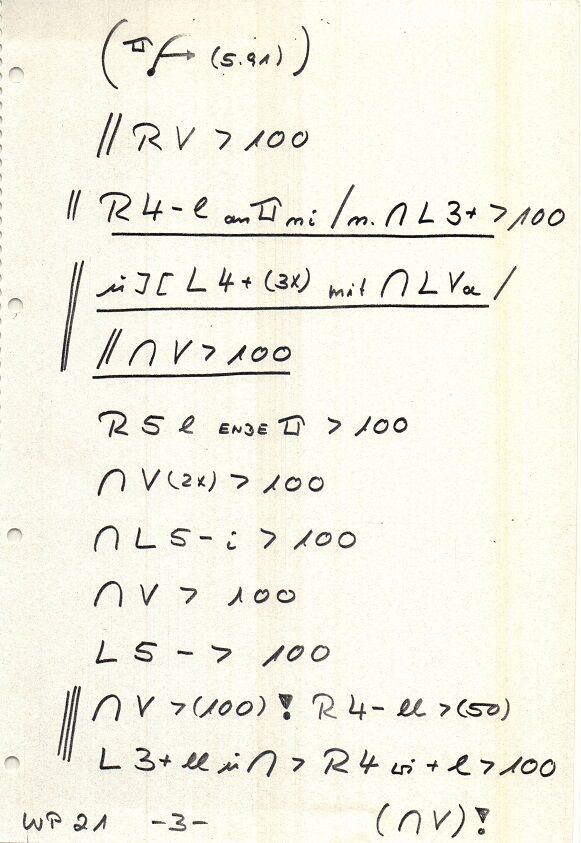 ( → (5.91))
|| RV > 100
|| R4-l an mi / m. ∩ L3+ > 100
in ][ L4+ (3x) mit ∩ L Vα /
|| ∩ V > 100
R5 l ENDE > 100
∩ V (2x) > 100
∩ L5-i > 100
∩ V > 100
L5 - > 100
||| ∩ V > (100) ! R4-ll > (50)
L3+ ll in ∩ > R4 + l > 100
WP 21 -3- (∩ V) !